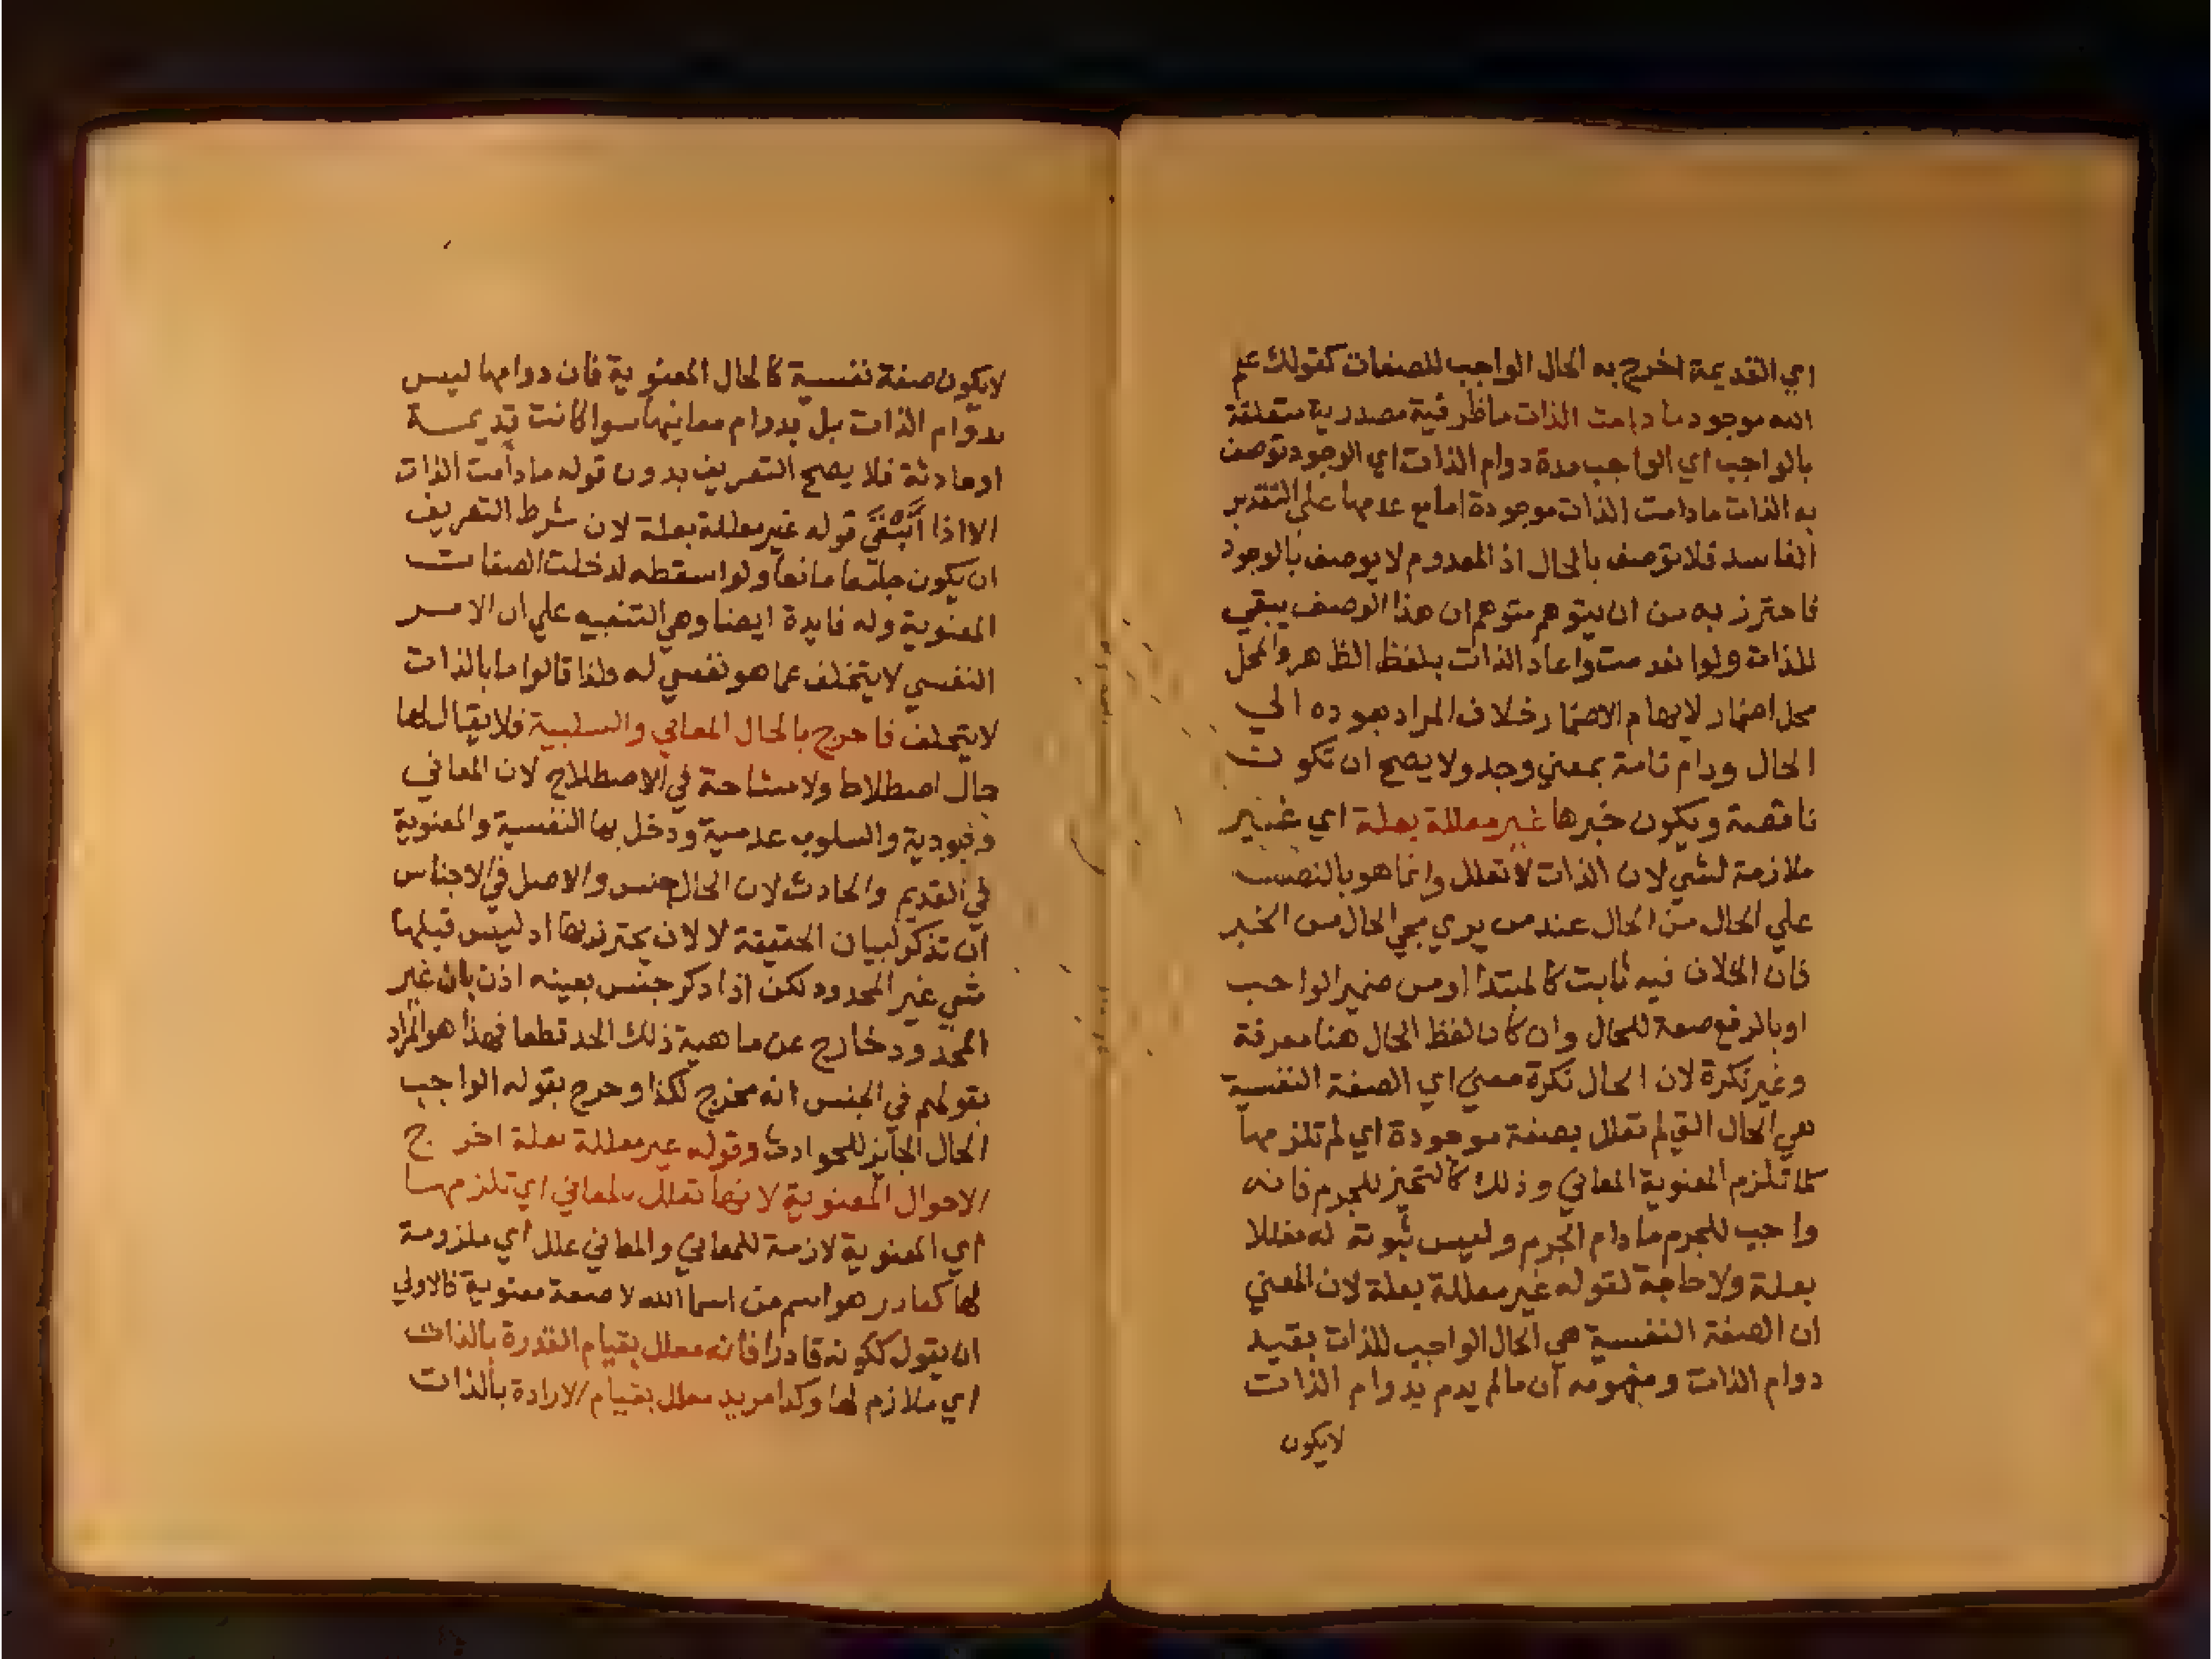 اي القديمة اخرج به الحال الواجب للصفات كقولك علم
الله موجود ما دامت الذات ما ظرفية مصدرية متعلقة
بالواجب اي الواجب مدة دوام الذات اي الوجود توصف
به الذات مادامت الذات موجودة اما مع عدمها علي التقدير
الفاسد فلا توصف بالحال اذ المعدوم لا يوصف بالوجود
فاحترز به من ان يتوهم متوهم ان هذا الوصف يبقي
للذات ولو انعدمت واعاد الذات بلفظ الظاهر والمحل
محل اضمار لايهام الاضمار خلاف المراد بعوده الي
الحال ودام تامة بمعني وجد ولا يصح ان تكون
ناقصة ويكون خبرها غير معللة بعلة اي غير
ملازمة لشي لان الذات لا تعلل وانما هو بالنصب
علي الحال من الحال عند من يري مجي الحال من الخبر
فان الخلاف فيه ثابت كالمبتدا او من ضمير الواجب
او بالرفع صفة للحال وان كان لفظ الحال هنا معرفة
وغير نكرة لان الحال نكرة معني اي الصفة النفسية
هي الحال التي لم تعلل بصفة موجودة اي لم تلزمها
كما تلزم المعنوية المعاني وذلك كالتحيز للجرم فانه
واجب للجرم مادام الجرم وليس ثبوته له معللا
بعلة ولا حاجة لقوله غير معللة بعلة لان المعني
ان الصفة النفسية هي الحال الواجب للذات بقيد
دوام الذات ومفهومه ان ما لم يدم بدوام الذات
لايكون
لايكون صفة نفسية كالحال المعنوية فان دوامها ليس
بدوام الذات بل بدوام معانيها سوا كانت قديمة
او حادثة فلا يصح التعريف بدون قوله مادامت الذات
الا اذا قوله غير معللة بعلة لان شرط التعريف
ان يكون جامعا مانعا ولو اسقطه لدخلت الصفات
المعنوية وله فايدة ايضا وهي التنبيه علي ان الامر
النفسي لا يتخلف عما هو نفسي له ولذا قالوا ما بالذات
لا يتخلف فاخرج بالحال المعاني والسلبية فلا يقال لها
حال اصطلاحا ولا مشاحة في الاصطلاح لان المعاني
وجودية والسلوب عدمية ودخل بها النفسية والمعنوية
في القديم والحادث لان الحال جنس والاصل في الاجناس
ان تذكر لبيان الحقيقة لا لان يحترز بها اد ليس قبلها
شي غير المحدود لكن اذا دكر جنس بعينه اذن بان غير
المحدود خارج عن ماهية ذلك الحد قطعا فهذا هو المراد
بقولهم في الجنس انه مخرج لكذا وخرج بقوله الواجب
الحال الجايز للحوادث وقوله غير معللة بعلة اخرج
الاحوال المعنوية لانها تعلل بالمعاني اي تلزمها
اي المعنوية لازمة للمعاني والمعاني علل اي ملزومة
لها كقادر هو اسم من اسما الله لا صفة معنوية فالاولي
ان يقول ككونه قادرا فانه معلل بقيام القدرة بالذات
اي ملازم لها وكدا مريد معلل بقيام الارادة بالذات